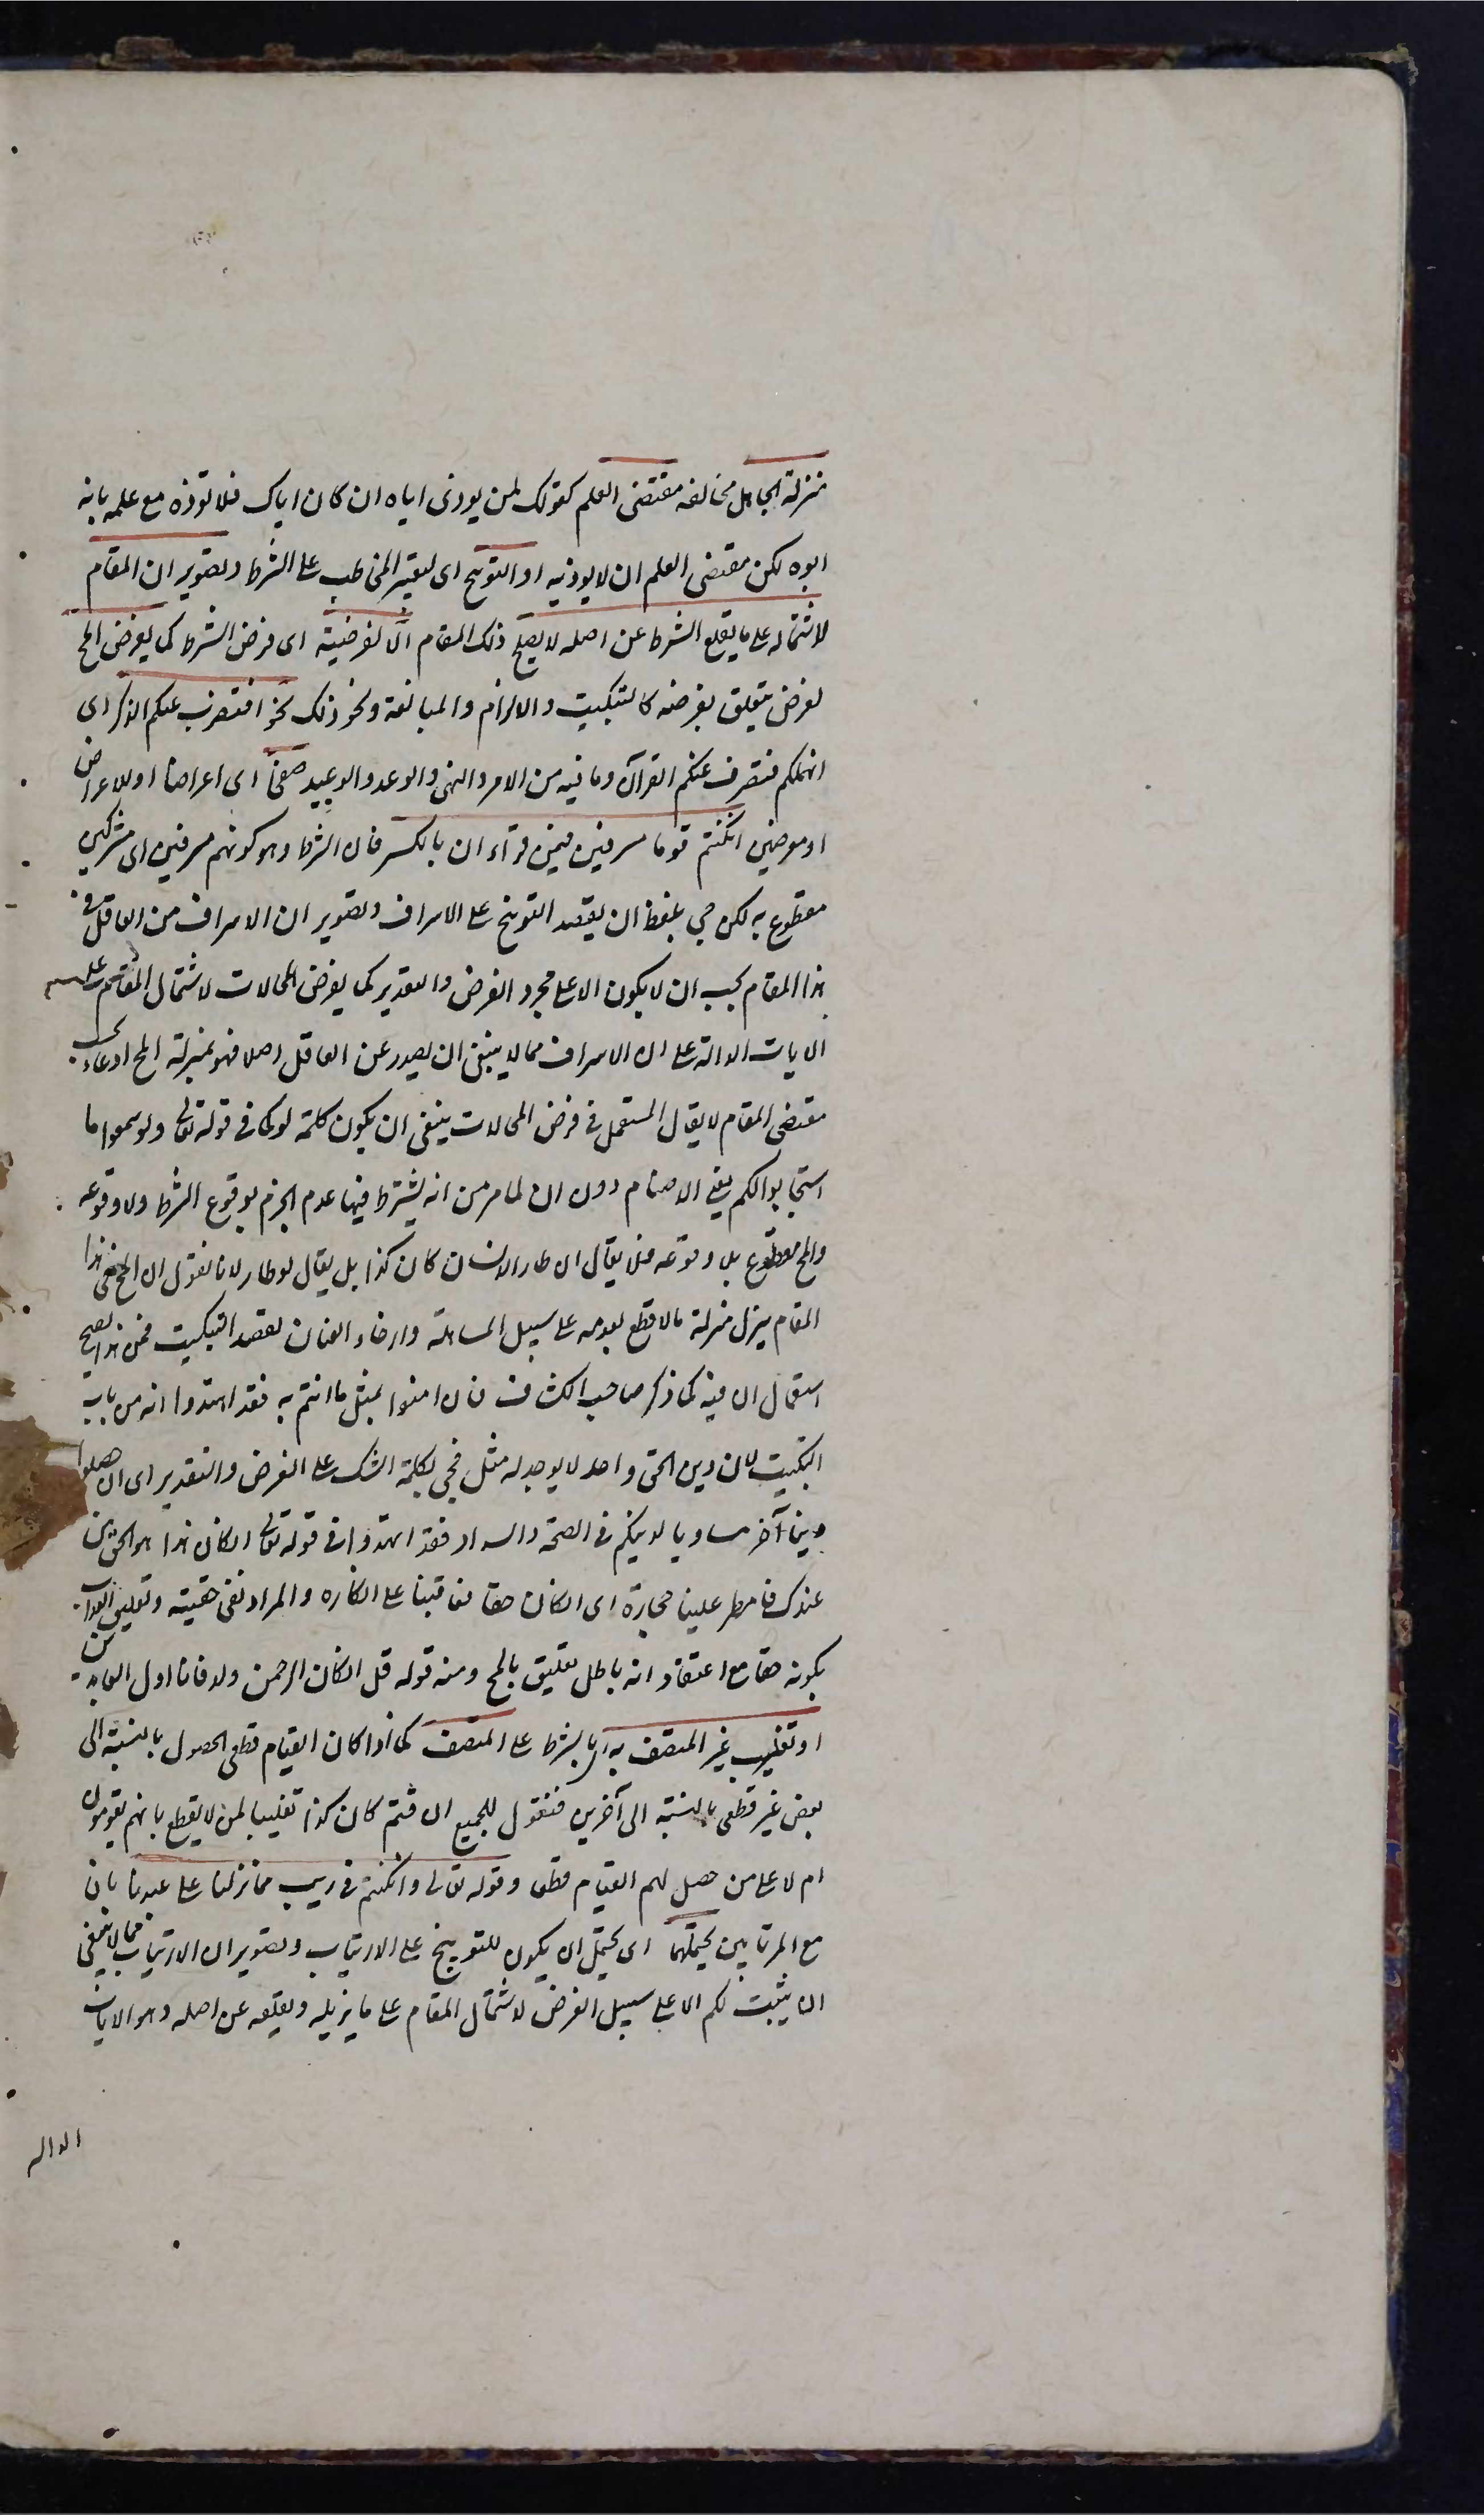 منزلة الجاهل مخالفه مقتضى العلم كقولك لمن يوذى اباه ان كان اباك فلا توذه مع علمه بانه
ابوه لكن مقتضى العلم ان لا يوذيه او التوبيخ اى لتعيير المخاطب على الشرط وتصوير ان المقام
لاشتماله على ما يقلع الشرط عن اصله لا يصلح ذلك المقام الا لفرضيته اى فرض الشرط كما يفرض المح
لغرض يتعلق بفرضه كالتبكيت والالزام والمبالغة ونحو ذلك نحو افنضرب عنكم الذكر اى
انهملكم فنصرف عنكم القرآن وما فيه من الامر والنهى والوعد والوعيد صفحا اى اعراضا او للاعراض
او معرضين ان كنتم قوما مسرفين فيمن قرأء ان بالكسر فان الشرط وهو كونهم مسرفين اى مشركين
مقطوع به لكن جى بلفظ ان لقصد التوبيخ على الاسراف وتصوير ان الاسراف من العاقل فى
هذا المقام يجب ان لا يكون الا على مجرد الفرض والتقدير كما يفرض المحالات لاشتمال المقام على
الايات الدالة على ان الاسراف مما لا ينبغى ان يصدر عن العاقل اصلا فهو بمنزلة المح ادعاء بحسب
مقتضى المقام لا يقال المستعمل فى فرض المحالات ينبغى ان يكون كلمة لو كما فى قوله تعالى ولو سمعوا ما
استجابوا لكم يعنى الاصنام دون ان لما مر من انه يشترط فيها عدم الجزم بوقوع الشرط ولا وقوعه
والمح مقطوع بلا وقوعه فلا يقال ان طار الانسان كان كذا بل يقال لو طار لانا نقول ان المح فى هذا
المقام ينزل منزلة ما لا قطع بعدمه على سبيل المساهلة وارخاء العنان لقصد التبكيت فمن هذا يصح
استعمال ان فيه كما ذكر صاحب الكشاف فان امنوا بمثل ما امنتم به فقد اهتدوا انه من باب
التبكيت لان دين الحق واحد لا يوجد له مثل فجى بكلمة الشك على الفرض والتقدير اى ان حصلوا
دينا آخر مساويا لدينكم فى الصحة والسداد فقد اهتدوا فى قوله تعالى ان كان هذا هو الحق من
عندك فامطر علينا حجارة اى ان كان حقا فعاقبنا على انكاره والمراد نفى حقيته وتعليق العذاب
بكونه حقا مع اعتقاد انه باطل تعليق بالمح ومنه قوله قل ان كان للرحمن ولد فانا اول العابدين
او تغليب غير المتصف به اى بالشرط على المتصف كما اذا كان القيام قطعى الحصول بالنسبة الى
بعض غير قطعى بالنسبة الى آخرين فنقول للجميع ان قمتم كان كذا تغليبا لمن لا يقطع بانهم يقومون
ام لا على من حصل لهم القيام قطعا وقوله تعالى وان كنتم فى ريب مما نزلنا على عبدنا بان
مع المرتابين يحتملهما اى يحتمل ان يكون للتوبيخ على الارتياب وتصوير ان الارتياب مما لا ينبغى
ان يثبت لكم الا على سبيل الفرض لاشتمال المقام على ما يزيله ويقلعه عن اصله وهو الايات
الداله